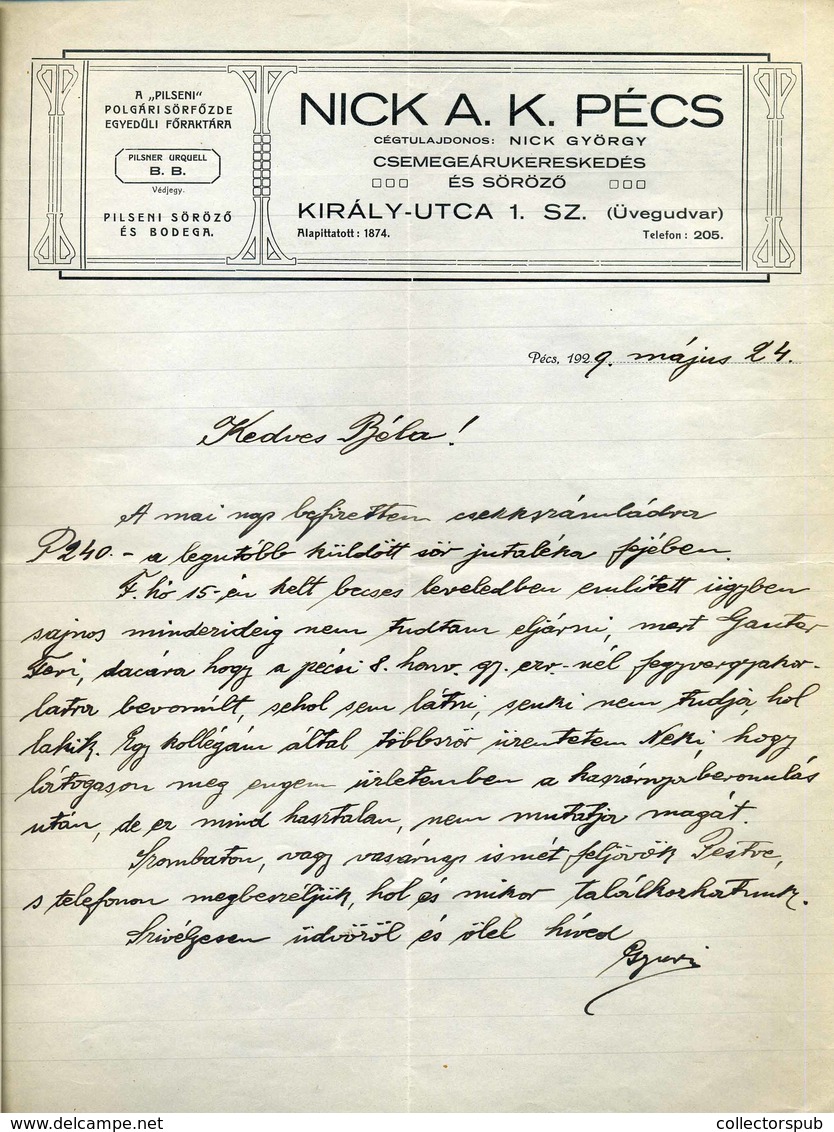 A „PILSENI"
POLGÁRI SÖRFŐZDE
EGYEDÜLI FŐRAKTÁRA
PILSNER URQUELL
B. B.
Védjegy.
PILSENI SÖRÖZŐ
ÉS BODEGA.
NICK A. K. PÉCS
CÉGTULAJDONOS: NICK GYÖRGY
CSEMEGEÁRUKERESKEDÉS
ÉS SÖRÖZŐ
KIRÁLY-UTCA 1. SZ. (Üvegudvar)
Alapittatott: 1874. Telefon: 205.
Pécs, 1929. május 24.
Kedves Béla!
A mai nap befizettem csekkszámládra
P 240.- a legutóbb küldött sör jutaléka fejében.
F. hó 15-én kelt becses leveledben emlitett ügyben
sajnos mindezideig nem tudtam eljárni, mert Gauter
Feri, dacára hogy a pécsi 8. honv. gy. ezr.-nél fegyvergyakor-
latra bevonult, sehol sem látni, senki nem tudja, hol
lakik. Egy kollégám által többször üzentetem Neki, hogy
látogason meg engem üzletemben a kaszárnyabavonulás
után, de ez mind hasztalan, nem mutatja magát.
Szombaton, vagy vasárnap ismét feljövök Pestre,
s telefonon megbeszéljük, hol és mikor találkozhatunk.
Szivélyesen üdvözöl és ölel híved
Gyuri
www.delcampe.net
collectorspub